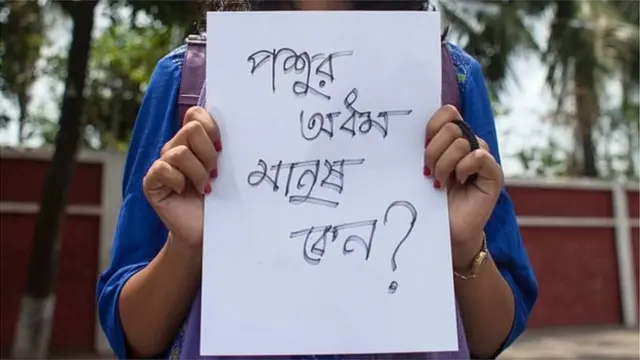 পশুর
অধম
মানুষ
কেন?